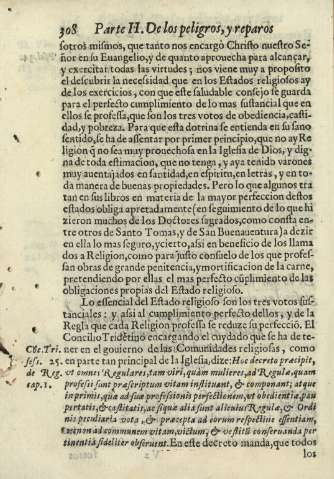 308 Parte II. De los peligros, y reparos
sotros mismos, que tanto nos encargò Christo nuestro Se-
ñor en su Euangelio, y de quanto aprouecha para alcançar,
y exercitar todas las virtudes; nos viene muy a proposito
el descubrir la necessidad que en los Estados religiosos ay
de los exercicios, con que este saludable consejo se guarda
para el perfecto cumplimiento de lo mas sustancial que en
ellos se professa, que son los tres votos de obediencia, casti-
dad, y pobreza. Para que esta dotrina se entienda en su sano
sentido, se ha de assentar por primer principio, que no ay Re
ligion q̃ no sea muy prouechosa en la Iglesia de Dios, y dig-
na de toda estimacion, que no tenga, y aya tenido varones
muy auentajados en santidad, en espiritu, en letras, y en to-
da manera de buenas propiedades. Pero lo que algunos tra
tan en sus libros en materia de la mayor perfeccion destos
estados obliga apretadamente (en seguimiento de lo que hi
zieron muchos de los Doctores sagrados, como consta en-
tre otros de Santo Tomas, y de San Buenauentura) a dezir
en ella lo mas seguro, y cierto, assi en beneficio de los llama
dos a Religion, como para justo consuelo de los que profes-
san obras de grande penitencia, y mortificacion de la carne,
pretendiendo por ellas el mas perfecto cũplimiento de las
obligaciones propias del Estado religioso.
Lo essencial del Estado religioso son los tres votos sus-
tanciales: y assi al cumplimiento perfecto dellos, y de la
Regla que cada Religion professa se reduze su perfeccion. El
Concilio Tridẽtino encargando el cuydado que se ha de te-
Cõc. Tri. ner en el gouierno de las Comunidades religiosas, como
sess. 25. en parte tan principal de la Iglesia, dize: Hoc decreto præcipit,
de Reg. vt omnes Regulares, tam viri, quàm mulieres, ad Regulæ, quam
cap. 1. professi sunt præscriptum vitam instituant, & componant; atque
in primis, quæ ad suæ professionis perfectionem, vt obedientiæ, pau
pertatis, & castitatis, ac si quæ alia sunt alicuius Regulæ, & Ordi
nis peculiaria vota, & præcepta ad eorum respectiue essentiam,
necnon ad communem vitam, victum, & vestitũ conseruanda per
tinentia fideliter obseruent. En este decreto manda, que todos
los